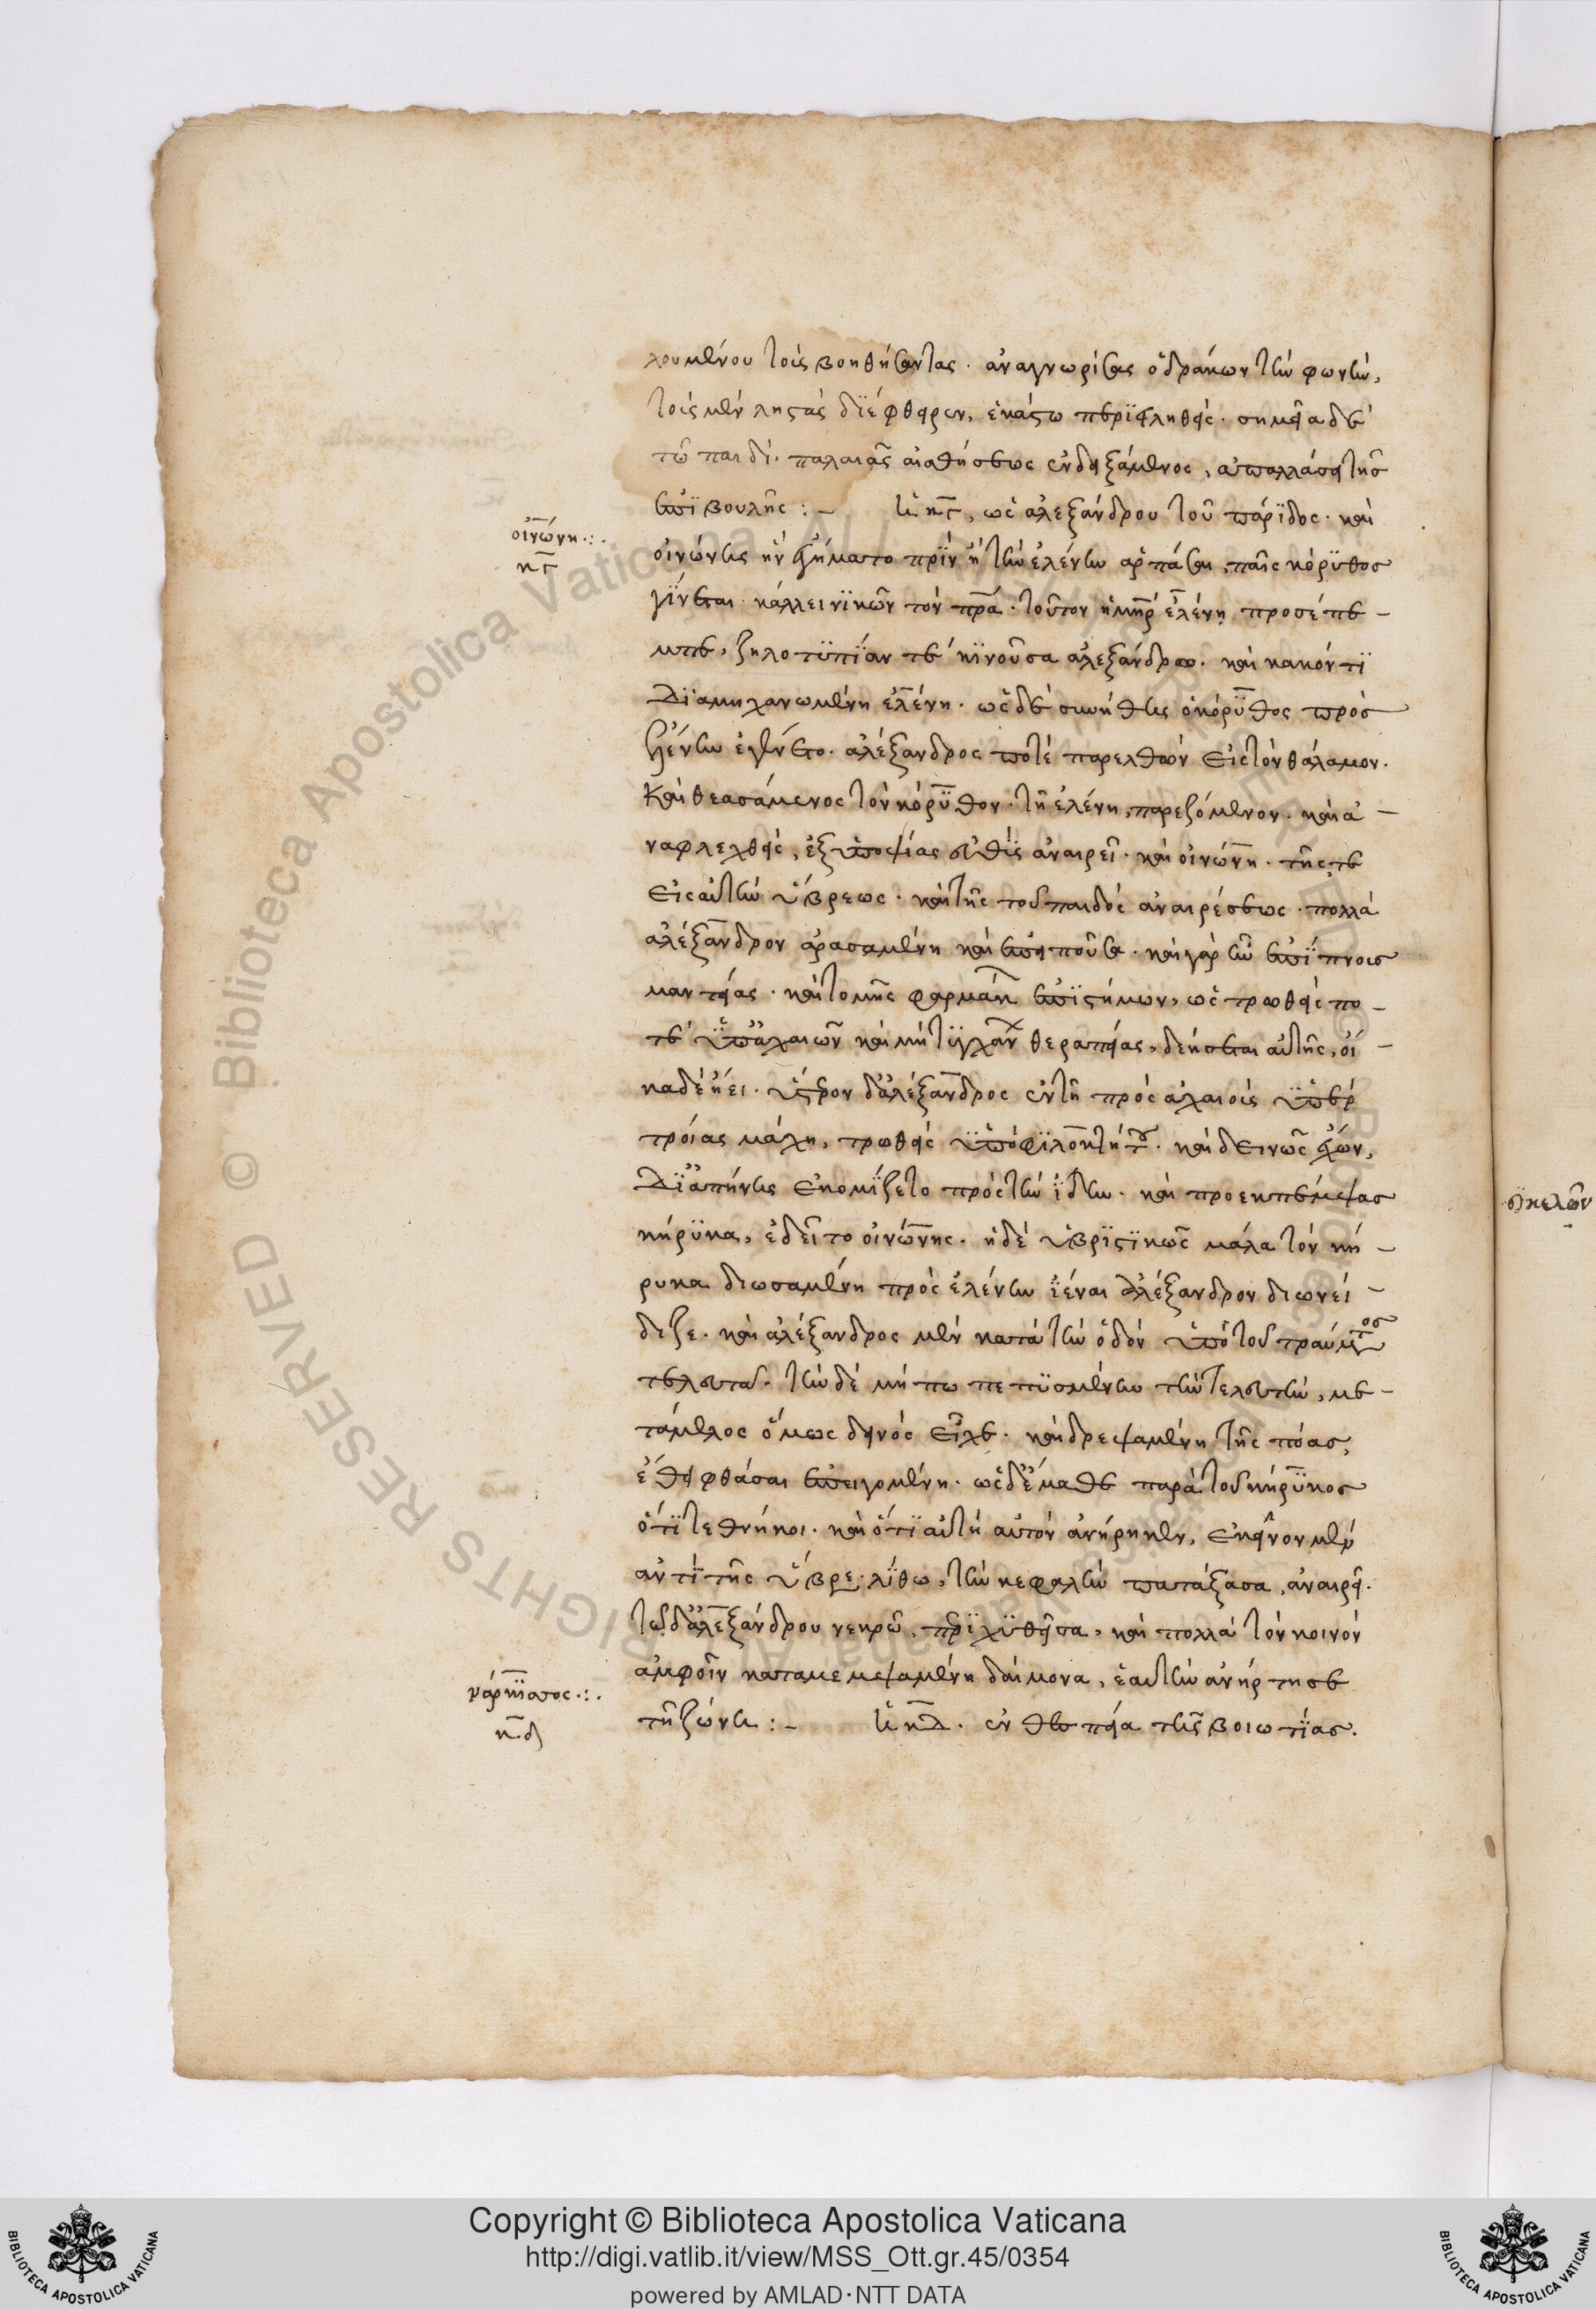 λουμένου τοὺς βοηθήσαντας. ἀναγνωρίσας ὁ δράκων τὴν φωνὴν,
τοὺς μὲν ληστὰς διέφθειρεν, ἑκάστω περιειληθείς. σημεῖα δὲ
τῶ παιδὶ παλαιᾶς αἰσθήσεως ἐνδειξάμενος, ἀπαλλάσσει τῆς
ἐπιβουλῆς :–
ἡ κγ, ὡς ἀλεξάνδρου τοῦ πάριδος. καὶ
οἰνώνη.:.
κγ
οἰνώνης ἣν ἐγήματο πρὶν ἢ τὴν ἑλένην ἁρπάσαι, παῖς κόρυθος
γίνεται κάλλει νικῶν τὸν πρα. τοῦτον ἡ μηρ ἑλένη προσέπε–
μπε, ζηλοτυπίαν τὲ κινοῦσα ἀλεξάνδρω. καὶ κακόν τι
διαμηχανωμένη ἑλένη. ὡς δὲ συνήθης ὁ κόρυθος πρὸς
ἑλένην ἐγένετο. ἀλέξανδρος ποτὲ παρελθὼν εἰς τὸν θάλαμον.
καὶ θεασάμενος τὸν κόρυθον τῆ ἑλένη παρεζόμενον. καὶ ἀ–
ναφλεχθεὶς, ἐξ ὑποψίας εὐθὺς ἀναιρεῖ. καὶ οἰνώνη. τῆς τε
εἰς αὐτὴν ὕβρεως. καὶ τῆς τοῦ παιδὸς ἀναιρέσεως. πολλὰ
ἀλέξανδρον ἀρασαμένη καὶ ἐπειποῦσα. καὶ γὰρ ἦν ἐπίπνοις
μαντείας. καὶ τομῆς φαρμάκ ἐπιστήμων, ὡς τρωθεὶς πο–
τὲ ὑπ' ἀχαιῶν καὶ μὴ τυγχάν θεραπείας, δεήσεται αὐτῆς, οἴ–
καδὲ ἤει. ὕστερον δ' ἀλέξανδρος ἐν τῆ πρὸς ἀχαιοὺς ὑπὲρ
τροίας μάχη, τρωθεὶς ὑπὸ φιλοκτήτου. καὶ δεινῶς ἔχων,
δι' ἀπήνης ἐκομίζετο πρὸς τὴν ἴδην. καὶ προεκπέμψας
κήρυκα, ἐδεῖτο οἰνώνης. ἡ δὲ ὑβριστικῶς μάλα τὸν κή–
ρυκα διωσαμένη πρὸς ἑλένην ἰέναι ἀλέξανδρον διωνεί–
διζε. καὶ ἀλέξανδρος μὲν κατὰ τὴν ὁδὸν ὑπὸ τοῦ τραύματος
τελευτᾶ. τὴν δὲ μήπω πεπυσμένην τὴν τελευτὴν, με–
τάμελος ὅμως δεινὸς εἷχε. καὶ δρεψαμένη τῆς πόας,
ἔθει φθάσαι ἐπειγομένη. ὡς δ' ἔμαθε παρὰ τοῦ κήρυκος
ὅτι τεθνήκοι. καὶ ὅτι αὐτὴ αὐτὸν ἀνήρηκεν, ἐκεῖνον μὲν
ἀντὶ τῆς ὕβρε λίθω, τὴν κεφαλὴν πατάξασα, ἀναιρεῖ.
τῶ δ' ἀλεξάνδρου νεκρῶ, πριχυθεῖσα, καὶ πολλὰ τὸν κοινὸν
ἀμφοῖν καταμεμψαμένη δαίμονα, ἑαυτὴν ἀνήρτησε
τῆ ζώνη :–
ἡ κδ. ἐν θεσπεία τῆς βοιωτίας.
νάρκισσος.:.
κδ
σικελῶν